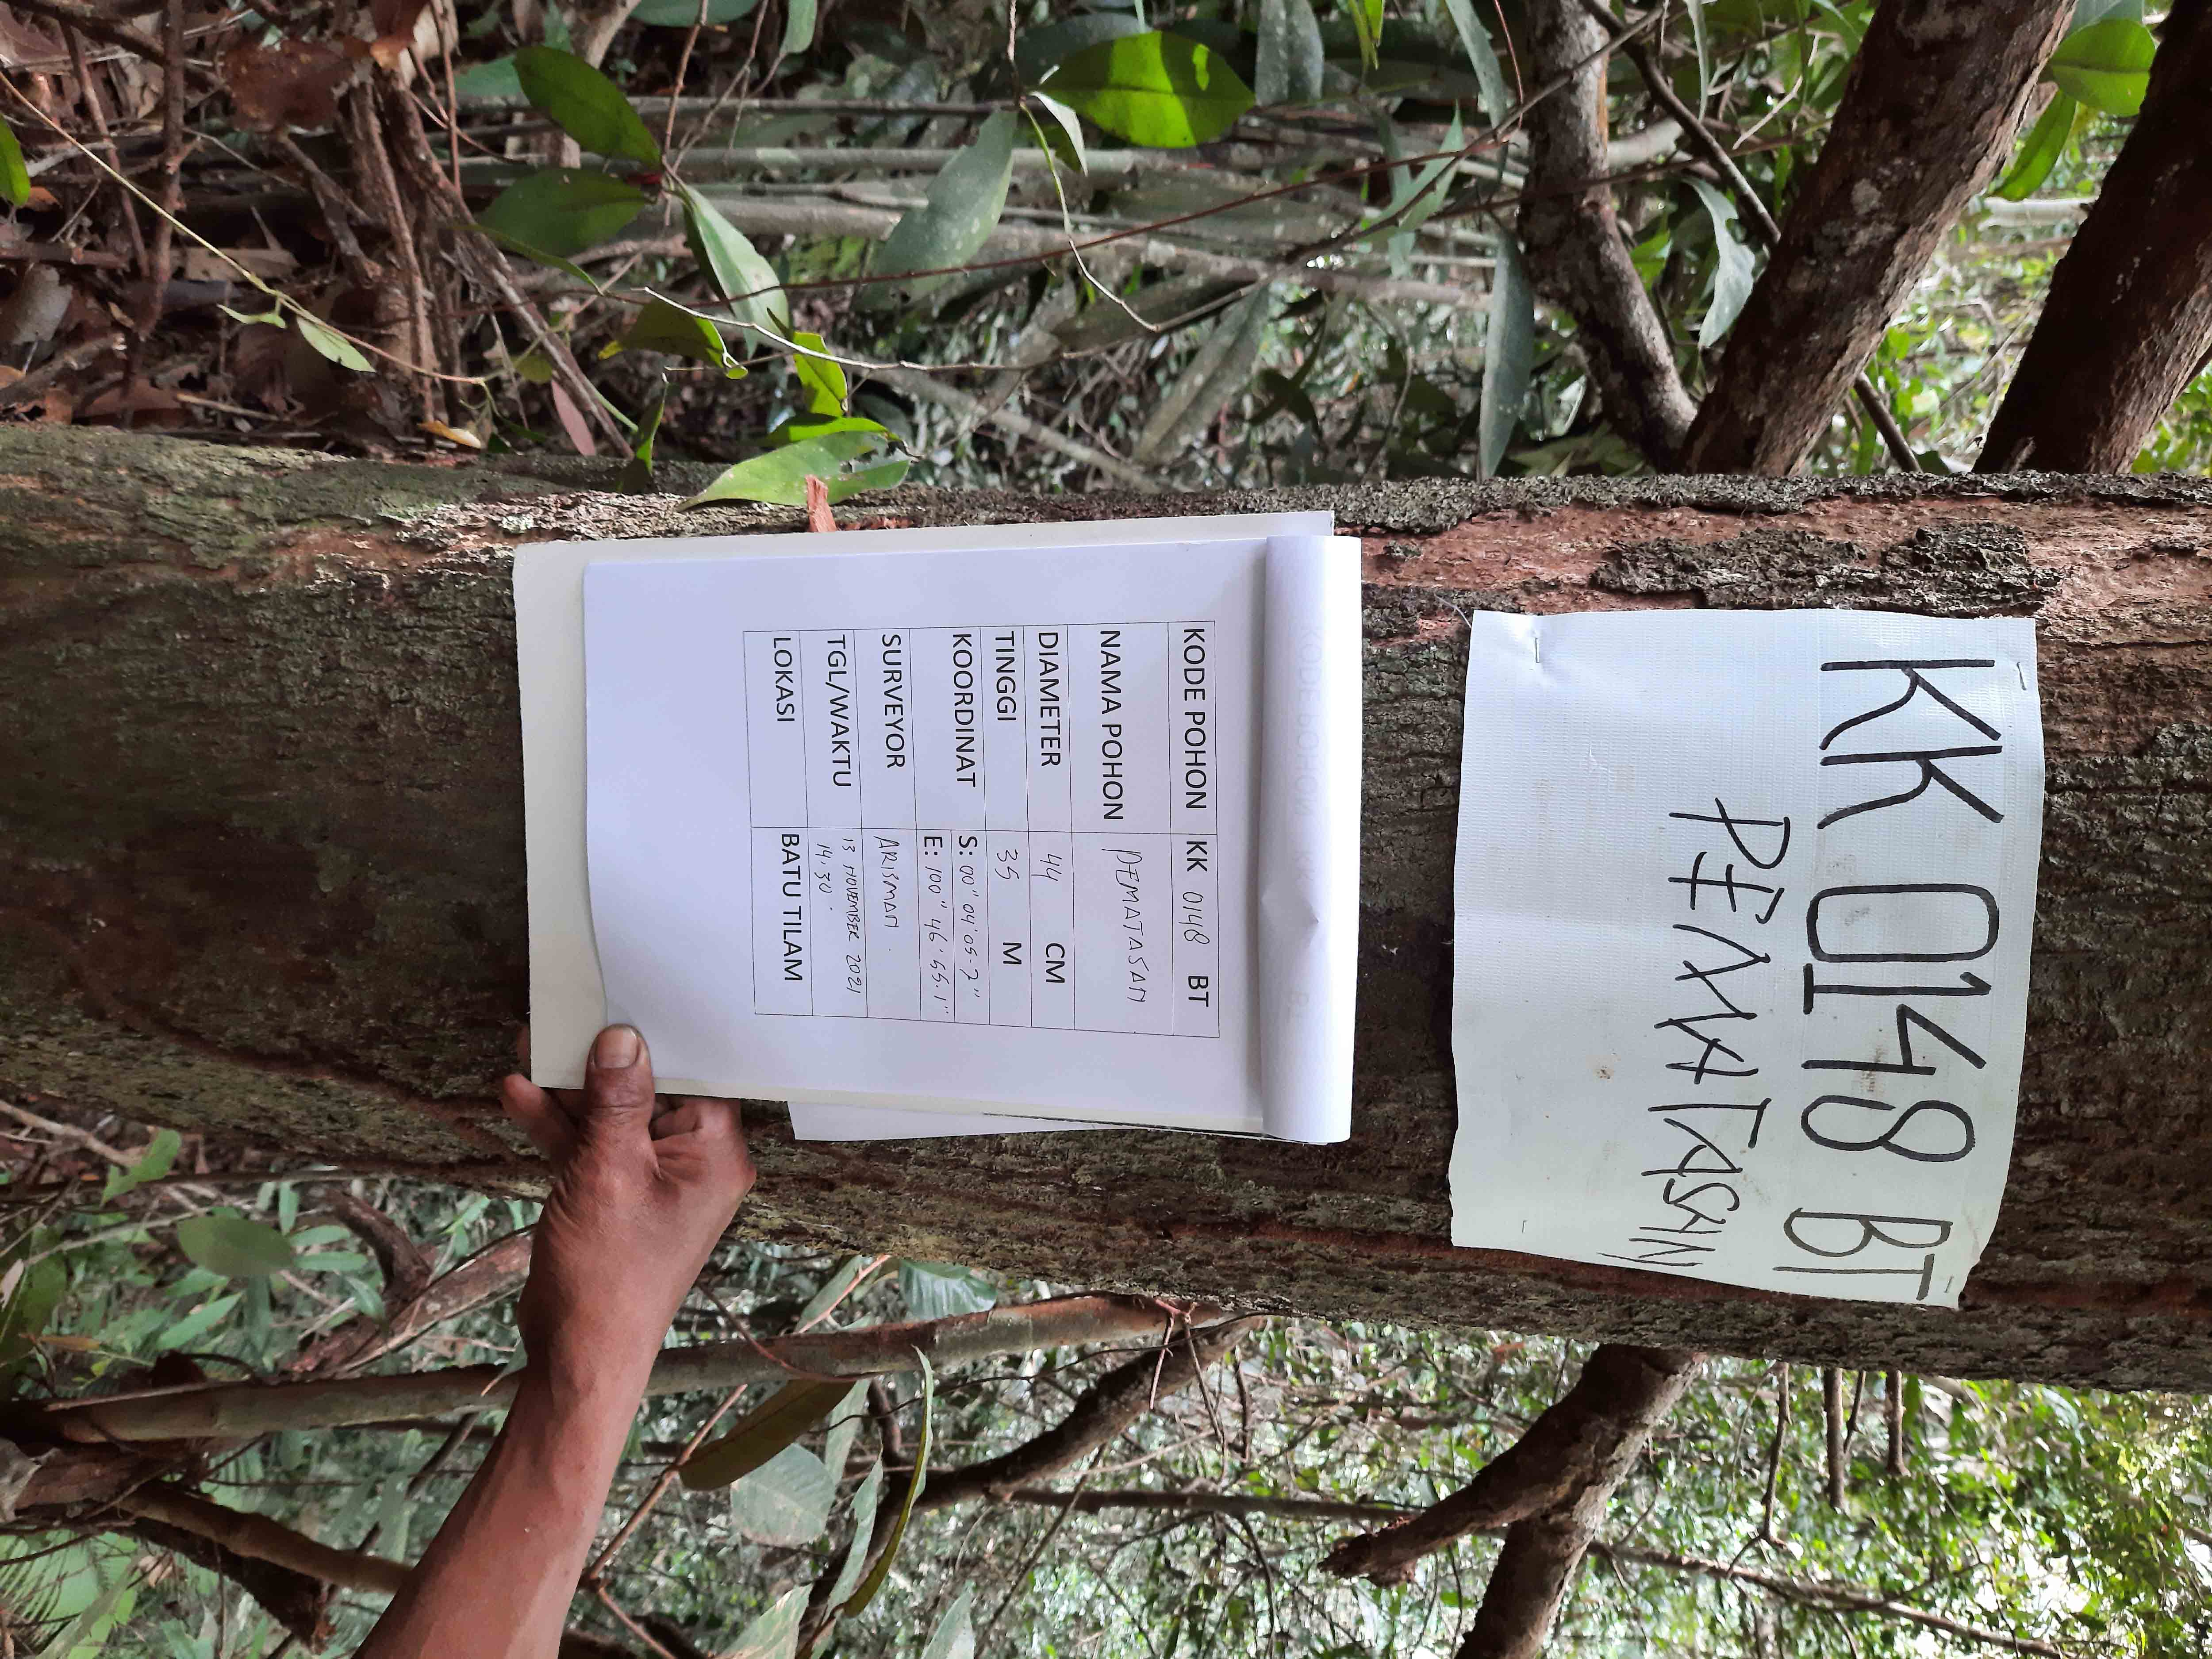 KK 0148 BT
PEMATASAN
KODE POHON KK 0148 BT
NAMA POHON PEMATASAN
DIAMETER 44 CM
TINGGI 35 M
KOORDINAT S: 00" 04' 05.7"
E: 100" 46' 55.1"
SURVEYOR ARISMAN.
TGL/WAKTU 13 NOVEMBER 2021
14.30.
LOKASI BATU TILAM